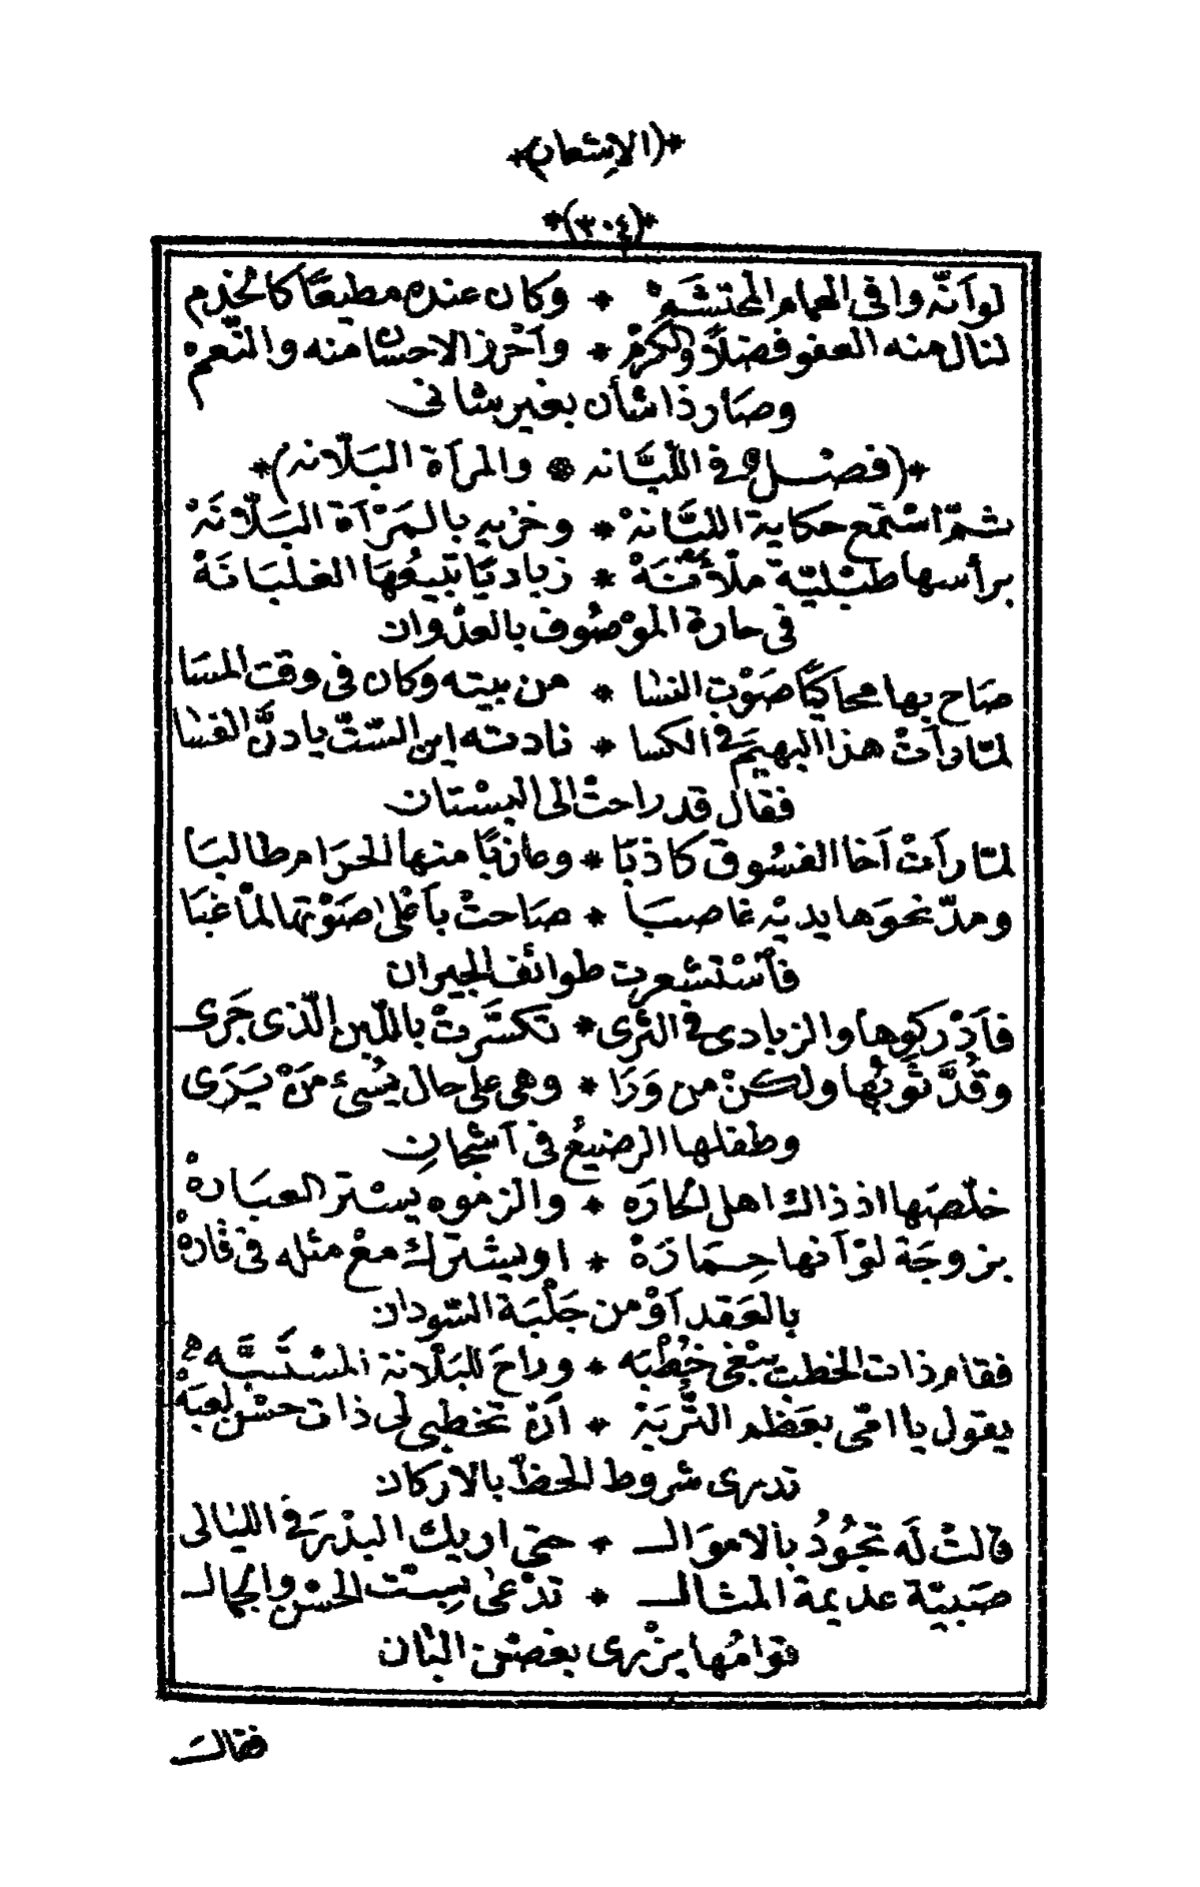 *(الاشعار)*
*(٣٠٤)*
لو أنّه وافى الهمام المحتشَمْ * وكان عنده مطيعًا كالخدم
لنال منه العفو فضلًا والكرمْ * وأحْرز الاحسان منه والنّعمْ
وصَار ذا شأن بغير شانى
*(فصْل فى اللبَّانه * والمرأة البَلّانه)*
ثمّ اسْتمع حكاية اللبَّانهْ * وخزيه بالمَرْأة البَلّانَهْ
برأسها طبْليّة ملآنَهْ * زباديًا تبيعُهَا الغلبَانَهْ
فى حارة الموْصُوف بالعدْوان
صَاح بها محاكيًا صَوْت النسَا * من بيته وكان فى وقت المسَا
لمّا رأتْ هذا البهيَم فى الكسا * نادته اين السّتّ يا دنَّ الفسَا
فقال قد راحتْ الى البسْتان
لمّا رأتْ أخا الفسُوق كاذبَا * وعازبًا منها الحرَام طالبَا
ومدّ نحوَها يديْه غاصبَا * صَاحتْ بأعْلى صَوْتها لمّا غبَا
فأسْتشعرت طوائف الجيران
فأدْركوها والزبادى فى الثرَى * تكسَّرتْ باللّبن الّذى جَرى
وقُدَّ ثَوبُها ولكنْ من وَرَا * وهى على حال يُسئ مَنْ يَرَى
وطفلها الرضيعُ فى أشجانِ
خلّصَها اذ ذاك اهل الحارَه * والزموه يسْتر العبَارهْ
بزوجَة لوْ أنها حِمَارَهْ * او يشترك معْ مثله فى فارهْ
بالعَقد أوْ من جَلْبَة السّودان
فقام ذات الخطب يبْغى خُطْبَه * وراحَ للبَلّانة المسْتَّبَّه
يقول يا امّى بعَظْم التُّربَهْ * أنْ تخطبى لى ذات حسْن لعبَهْ
تدرى شروط الحظّ بالاركان
قالتْ لَه تجُودُ بالاموَال * حتى اريك البدْرَ فى الليَالى
صَبيّة عديمة المثال * تدْعى بسِتْ الحسْن والجمال
قوامُها يزْرى بغصْن البَان
فقالت